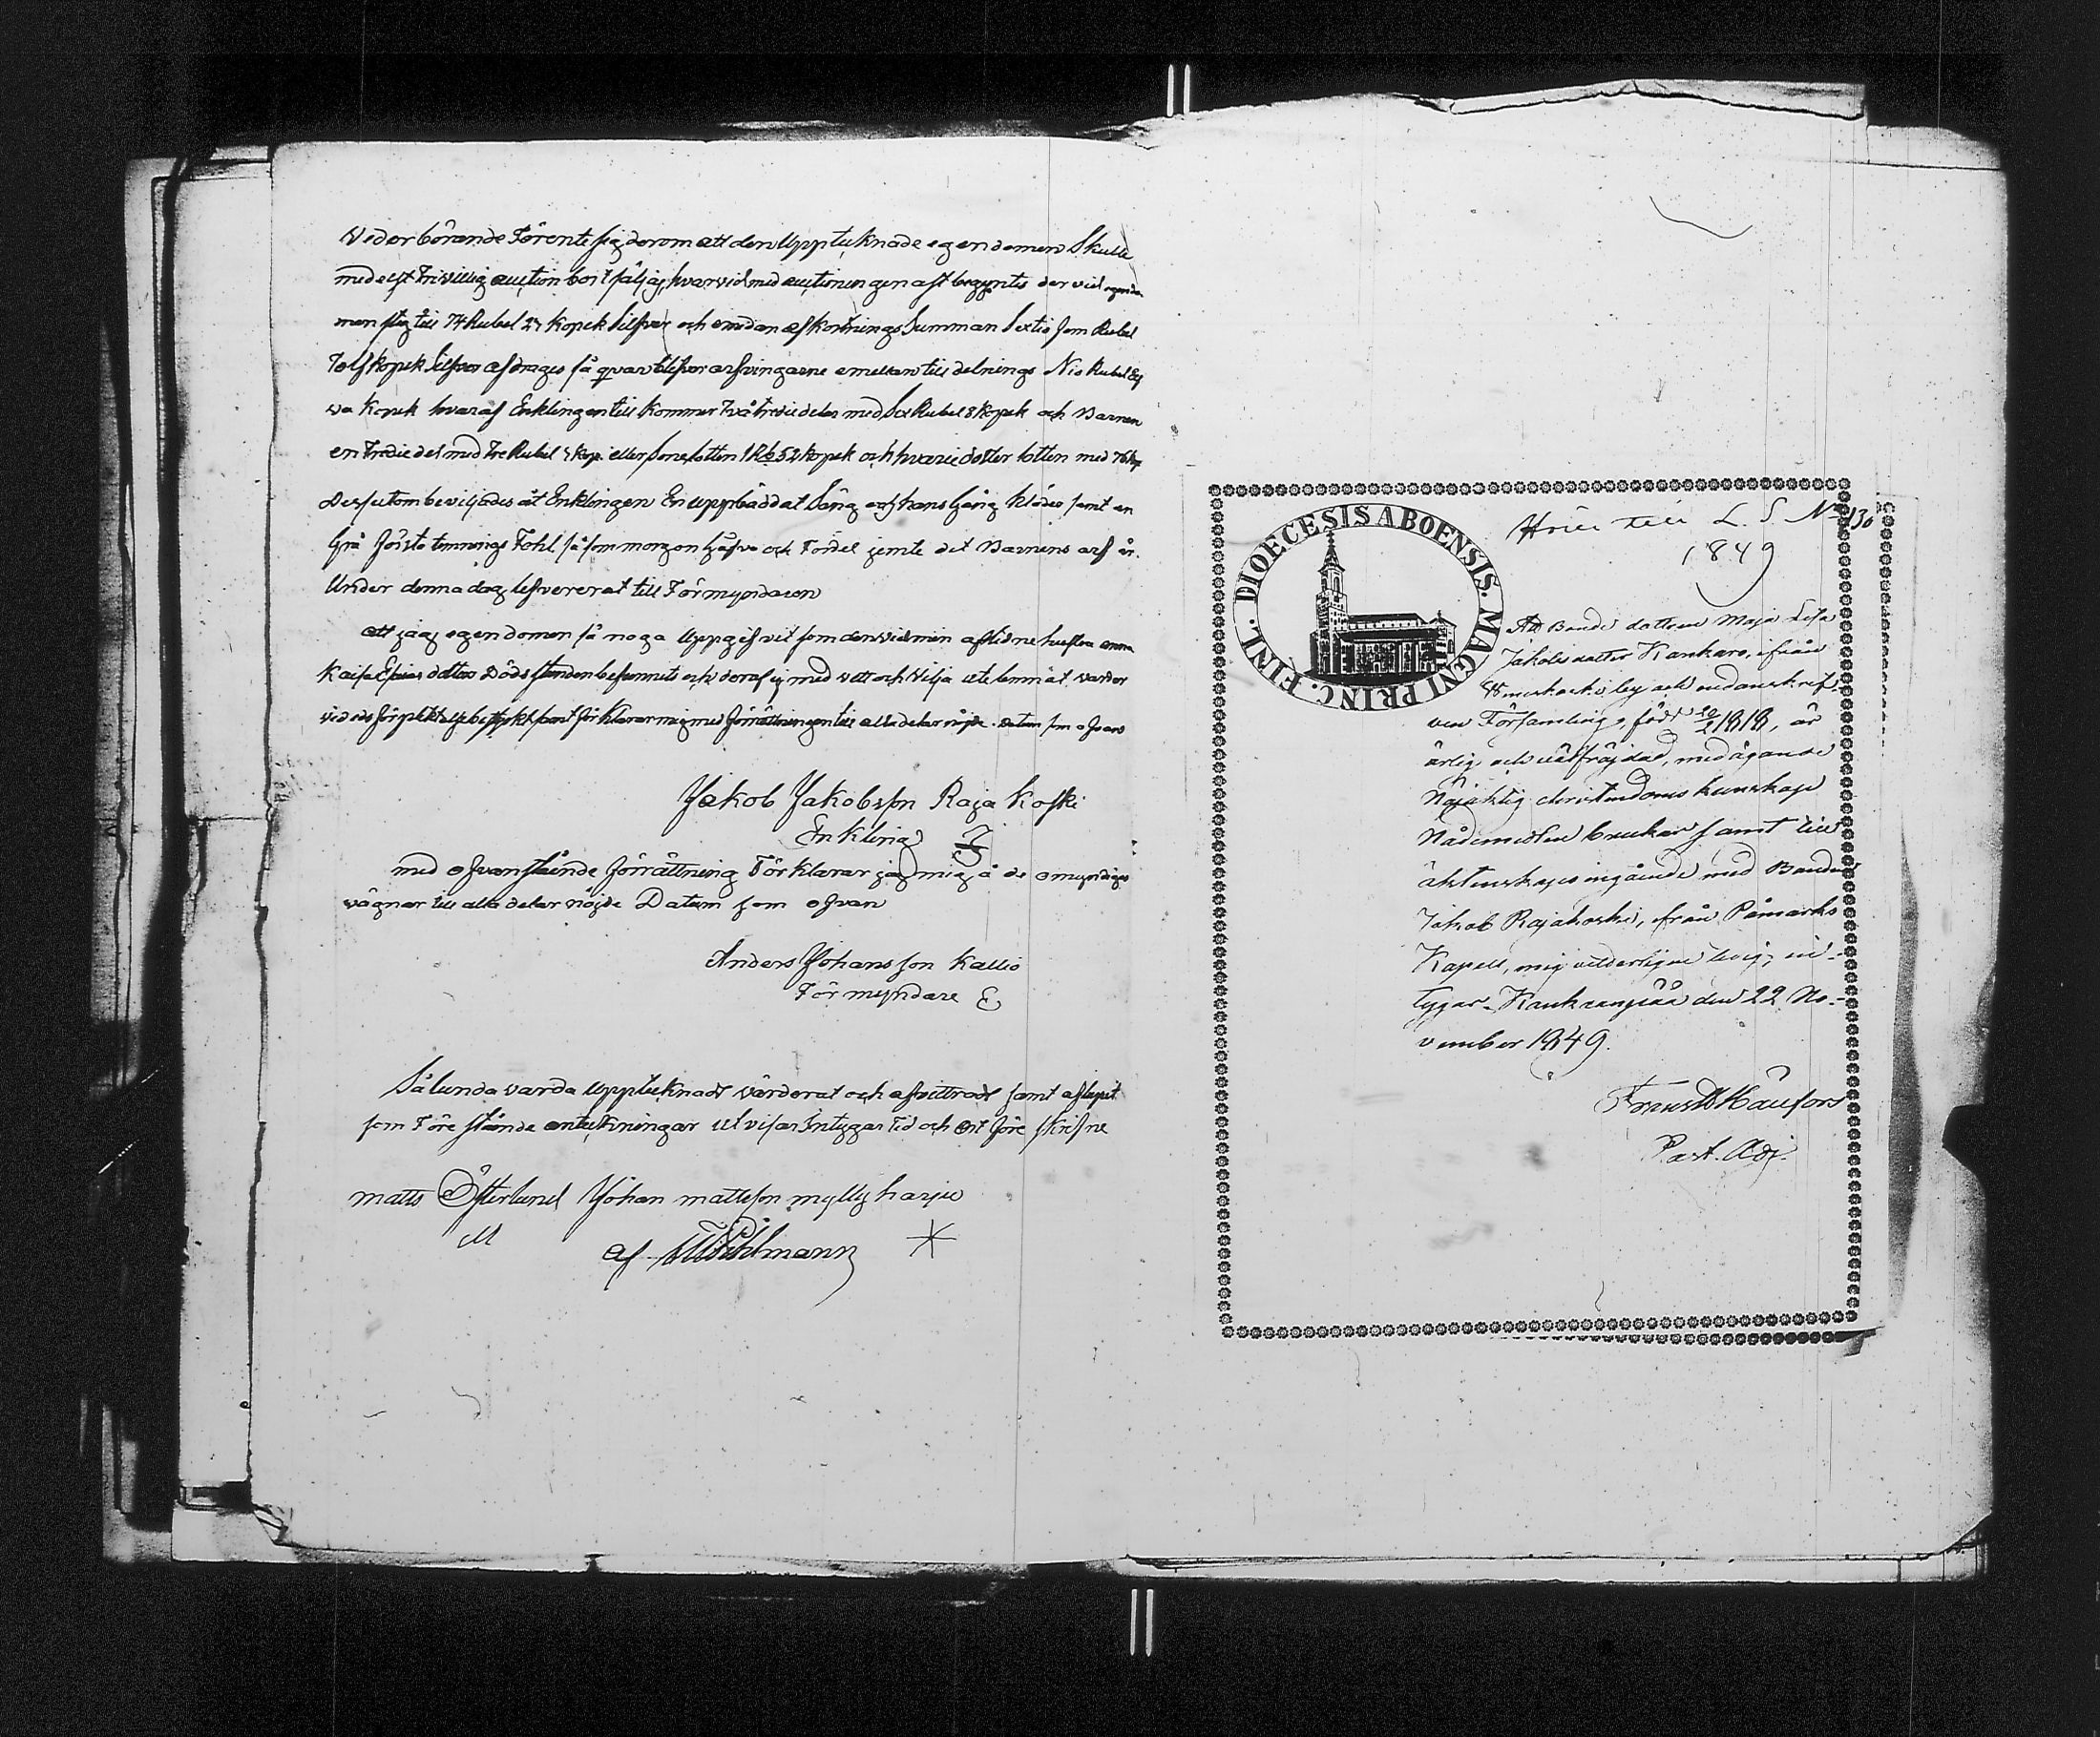 Vederbörande Förente sig derom att den Upptecknade egendomen Skulle
medelst Frivillig auction bortsäljas, hvarvid med auctionen genast begyntes der vid egendo-
men steg till 74 Rubel 27 Kopek Silfver och emedan afkortnings Summan Sextio fem Rubel
Tolf kopek Silfver afdrages så qvarblifver arfvingarne emellan till delnings Nio Rubel
Kopek hvaraf Enklingen tillkommer två tredie delar med Sex Rubel 8 Kopek och Barnen
en Tredie del med Tre Rubel 4 Kop. eller Sonslotten 1 Rb 52 kopek och hvarie dotter lotten med 76 kp
Dessutom beviljades åt Enklingen En uppbäddat Säng och hans Gång kläder samt en
Grå såsom morgongåfva och Fördel jemte det Barnens arf är
Under denna dag lefvererat till Förmyndaren
att jag egendomen så noga Uppgifvit som den vid min aflidne hustru anna
Kaisa dotters Dödsstunden befunnits och deraf ej med vett och Vilja utelemnat varder
vid eds förplicktelse bestyrkt samt förklarar mig med förrättningen till alla delar nöjde. Datum som ofvan
Jakob Jakobsson Raja Koski
Enkling
med ofvanstående förrättning Förklarar jag mig å de omyndiges
vägnar till alla delar nöjde Datum som ofvan
Anders Johansson Kallio
Förmyndare E
Sålunda varda Upptecknadt värderat och afvittradt samt aflupit
som Förestående anteckningar utvisar Intygar Tid och Ort före skrifne
matts Österlund Johan mattsson myllyharju
M
af Pohlmann
DIOECESIS ABOENSIS. MAGNI PRINC. FINL.
Hörer till L. S. No 130
1849
Att Bonde dottren Maja Lisa
Jakobsdotter Kankaro, ifrån
by och nedanskref-
ven Församling, född 20/2 1818, är
ärlig och välfräjdad, med ägande
Nöjaktig christendoms kunskap
Nådemedlen brukar samt till
äktenskaps ingående med Bonden
Jakob Rajakoski, från Påmarks
Kapell, mig vetterligen ledig, in-
tygar. Kankaanpää den 22 No-
vember 1849.
Past. Adj.